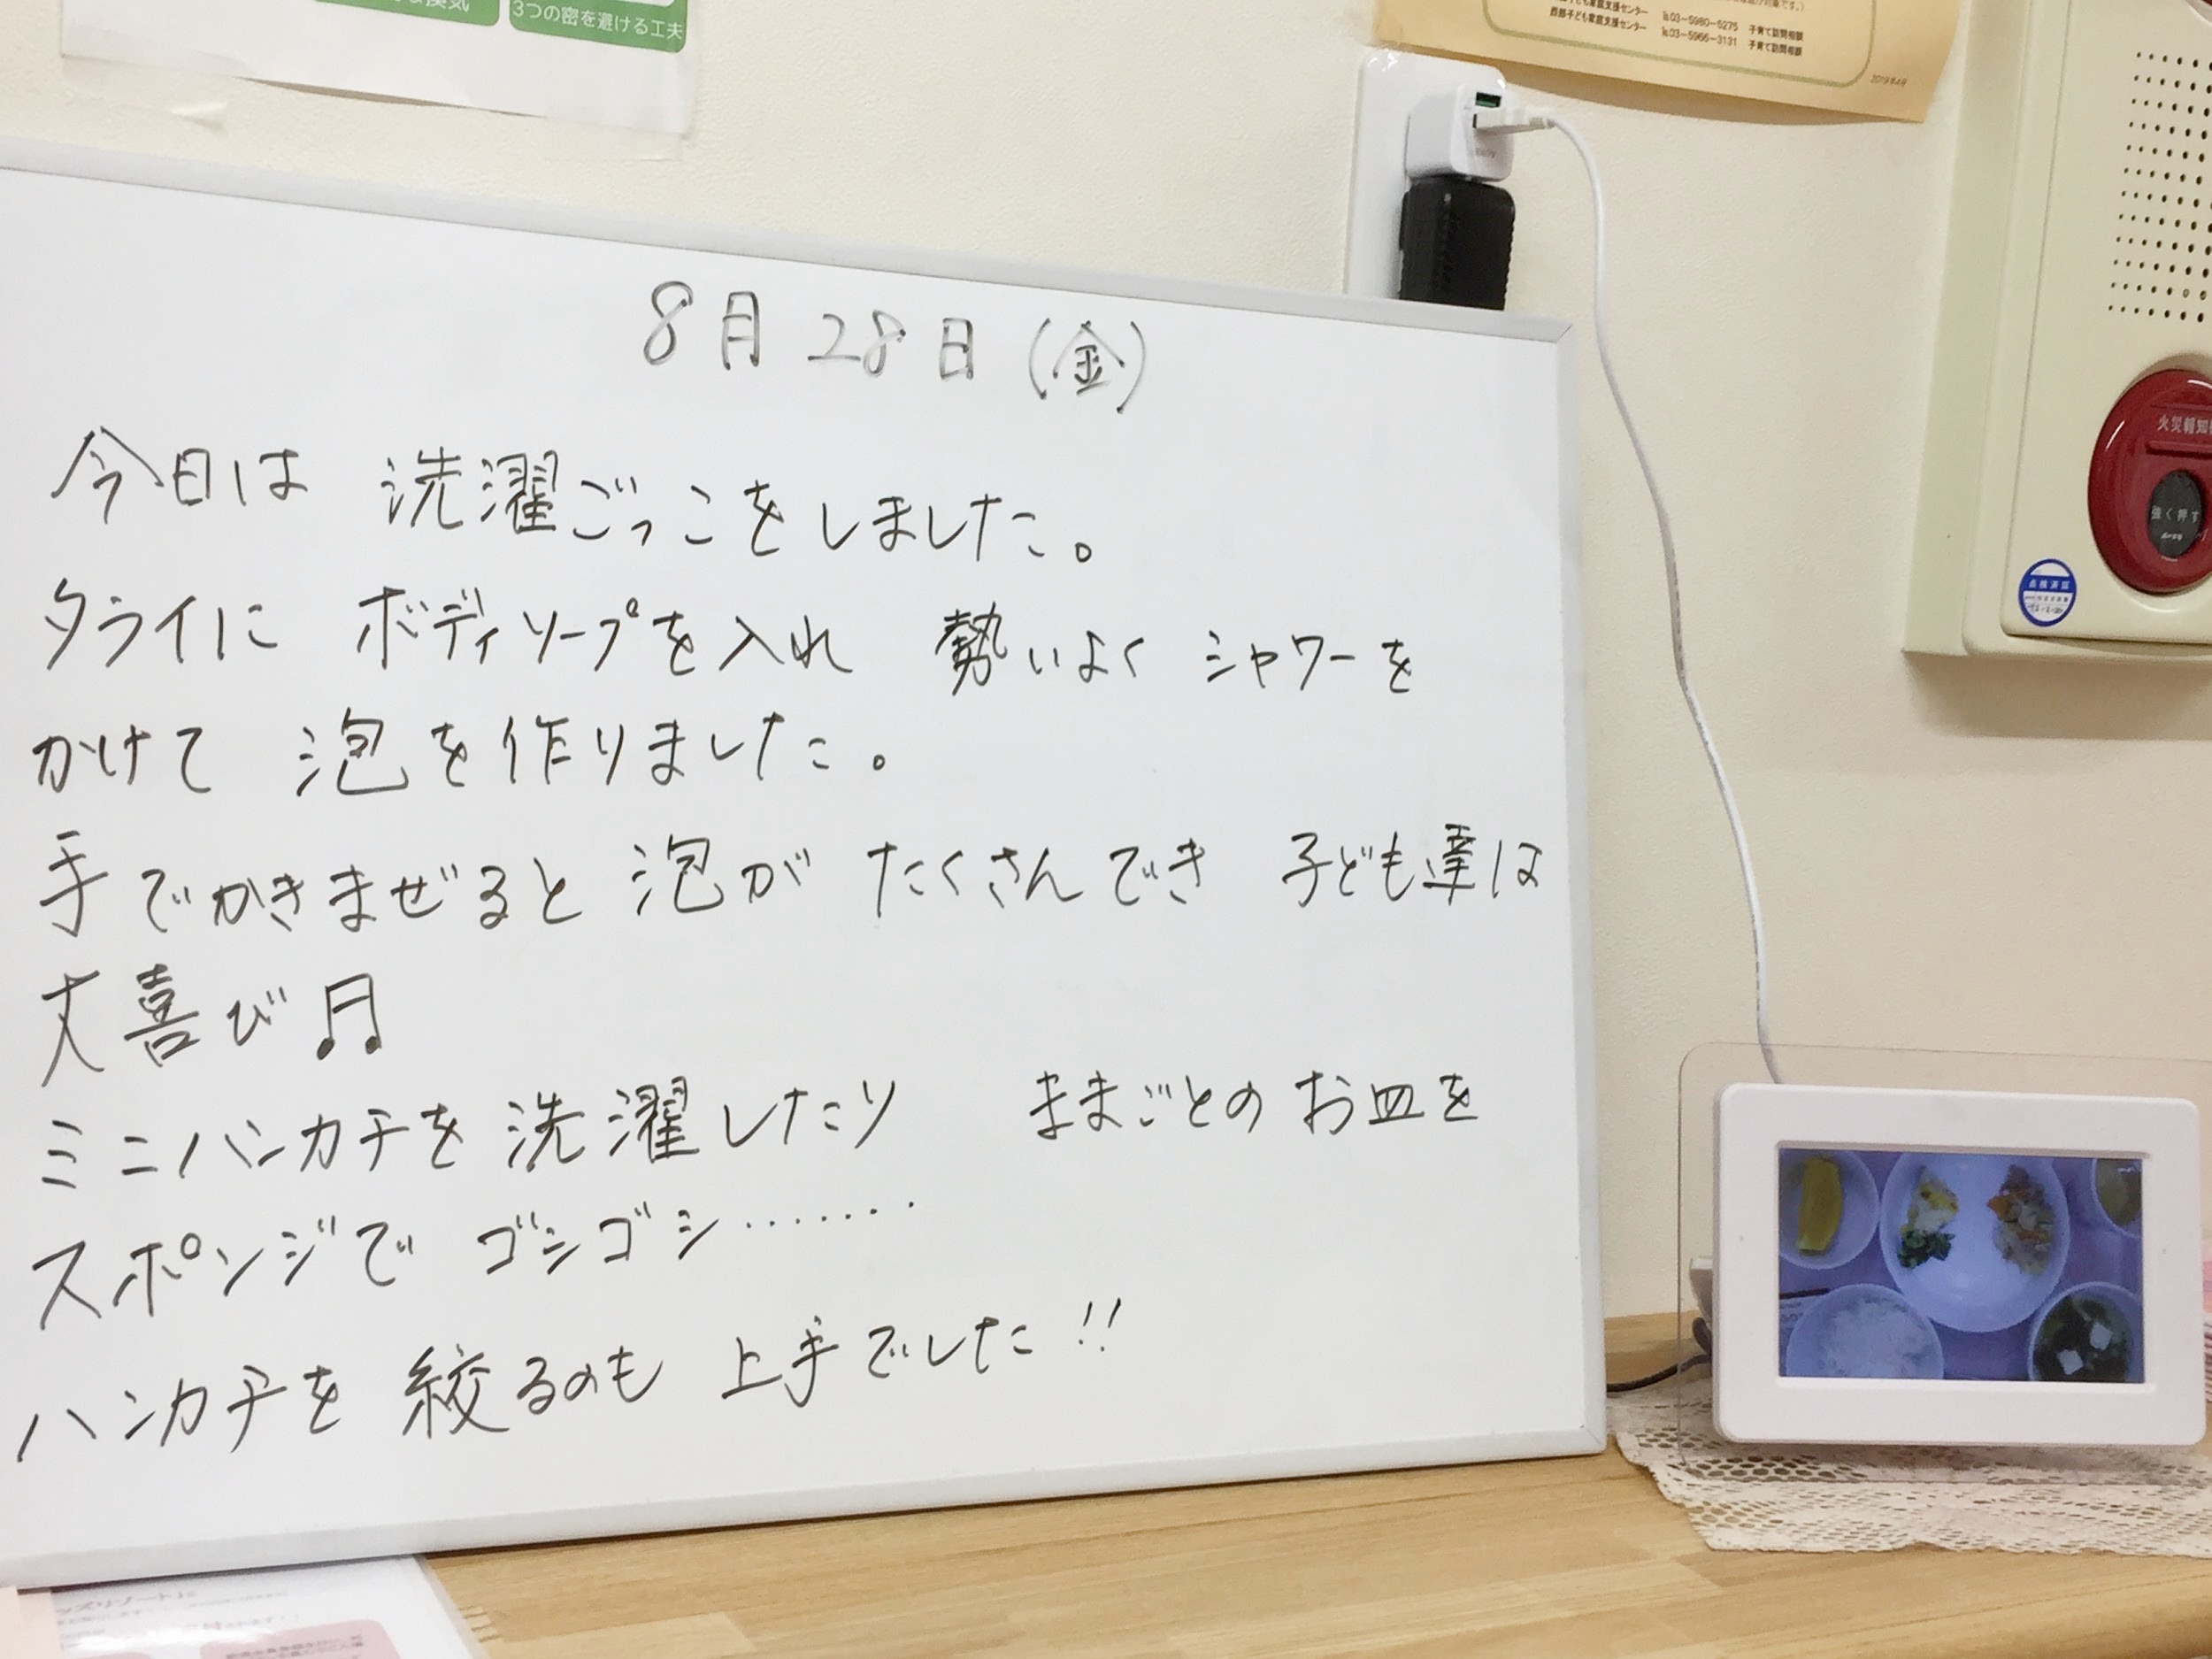 3つの密を避ける工夫
西部子ども家庭支援センター ℡03-5966-3131 子育て訪問相談
℡03-5980-5275 子育て訪問相談
2019年4月
8月28日(金)
今日は 洗濯ごっこをしました。
タライに ボディソープを入れ 勢いよく シャワーを
かけて 泡を作りました。
手でかきまぜると 泡が たくさんでき 子ども達は
大喜び♫
ミニハンカチを洗濯したり ままごとのお皿を
スポンジで ゴシゴシ・・・・・・・
ハンカチを 絞るのも 上手でした!!
火災報知
強く押す